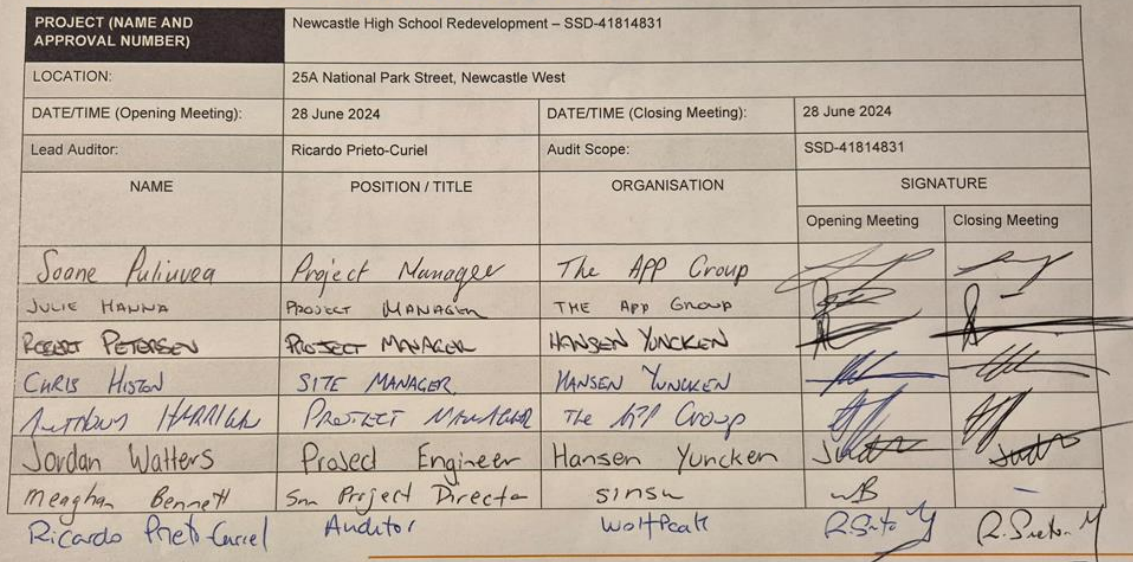 PROJECT (NAME AND APPROVAL NUMBER) Newcastle High School Redevelopment – SSD-41814831
LOCATION: 25A National Park Street, Newcastle West
DATE/TIME (Opening Meeting): 28 June 2024 DATE/TIME (Closing Meeting): 28 June 2024
Lead Auditor: Ricardo Prieto-Curiel Audit Scope: SSD-41814831
NAME POSITION / TITLE ORGANISATION SIGNATURE
Opening Meeting Closing Meeting
Soane Puliuvea Project Manager The APP Group
JULIE HANNA PROJECT MANAGER THE APP GROUP
ROBERT PETERSEN PROJECT MANAGER HANSEN YUNCKEN
CHRIS HISTON SITE MANAGER HANSEN YUNCKEN
ANTHONY PROJECT MANAGER The APP Group
Jordan Watters Project Engineer Hansen Yuncken
Meaghan Bennett Project Director
Ricardo Prieto-Curiel Auditor WolfPeak